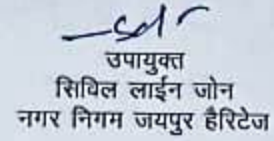 sd/-
उपायुक्त
सिविल लाईन जोन
नगर निगम जयपुर हैरिटेज